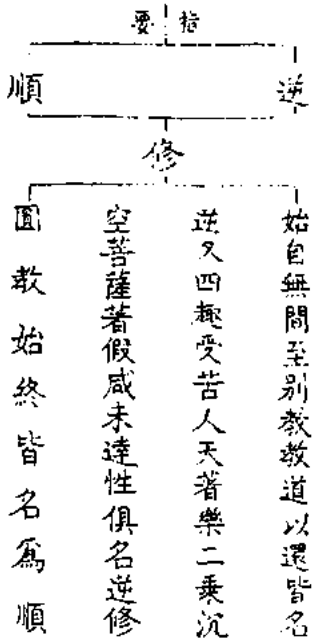 指要
逆
順
修
始自無間至別教教道以還皆名
逆又四趣受苦人天著樂二乘沉
空菩薩著假咸未達性俱名逆修
圓教始終皆名爲順